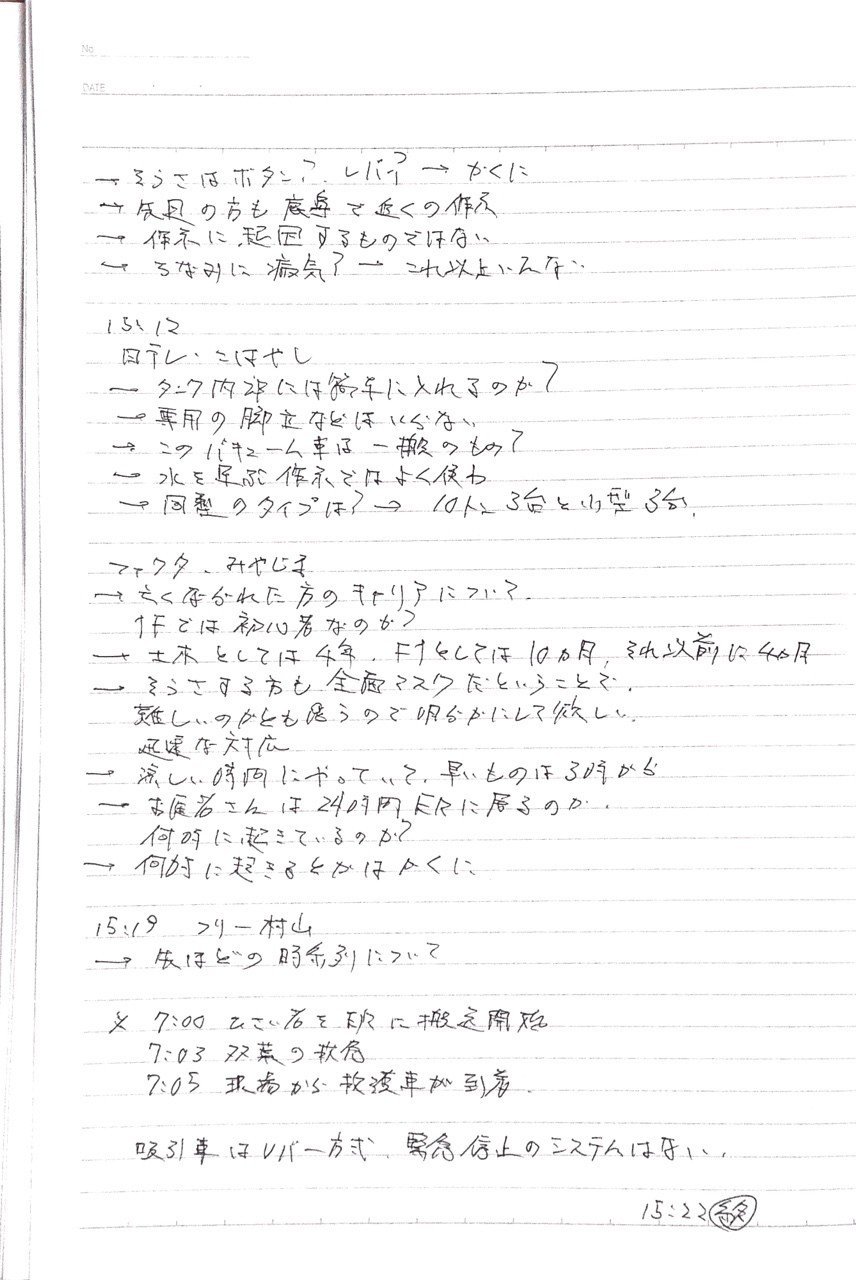 No
DATE
→ そうさはボタン？、レバー？ → かくに
→ 反員の方も底辱で近くの作業
→ 作業に起因するものではない
→ ちなみに病気？ → これ以上いえない
15:12
日テレ・こばやし
→ タンク内部には簡単に入れるのか？
→ 専用の脚立などはいらない
→ このバキューム車は一般のもの？
→ 水を運ぶ作業ではよく使わ
→ 同型のタイプは？ → 10トン3台と小型3台、
ファクタ、みやじま
→ 亡くなられた方のキャリアについて、
1Fでは初心者なのか？
→ 土木としては4年、1Fとしては10ヵ月、それ以前に4ヵ月
→ そうさする方も全面マスクだということで、
難しいのかとも思うので明らかにして欲しい、
迅速な対応
→ 涼しい時間にやっていて、早いものは3時から
→ お医者さんは24時間ERに居るのか、
何時に起きているのか？
→ 何時に起きるとかはかくに
15:19 フリー村山
→ 先ほどの時系列について
※ 7:00 ひさい者をERに搬送開始
7:03 双葉の救急
7:05 現場から救護車が到着、
吸引車はレバー方式、緊急停止のシステムはない、
15:22 終